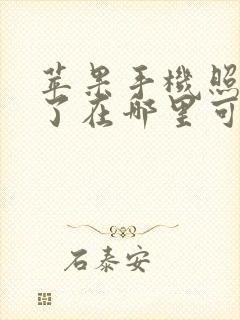 苹果手機照
了在哪里可
石泰安